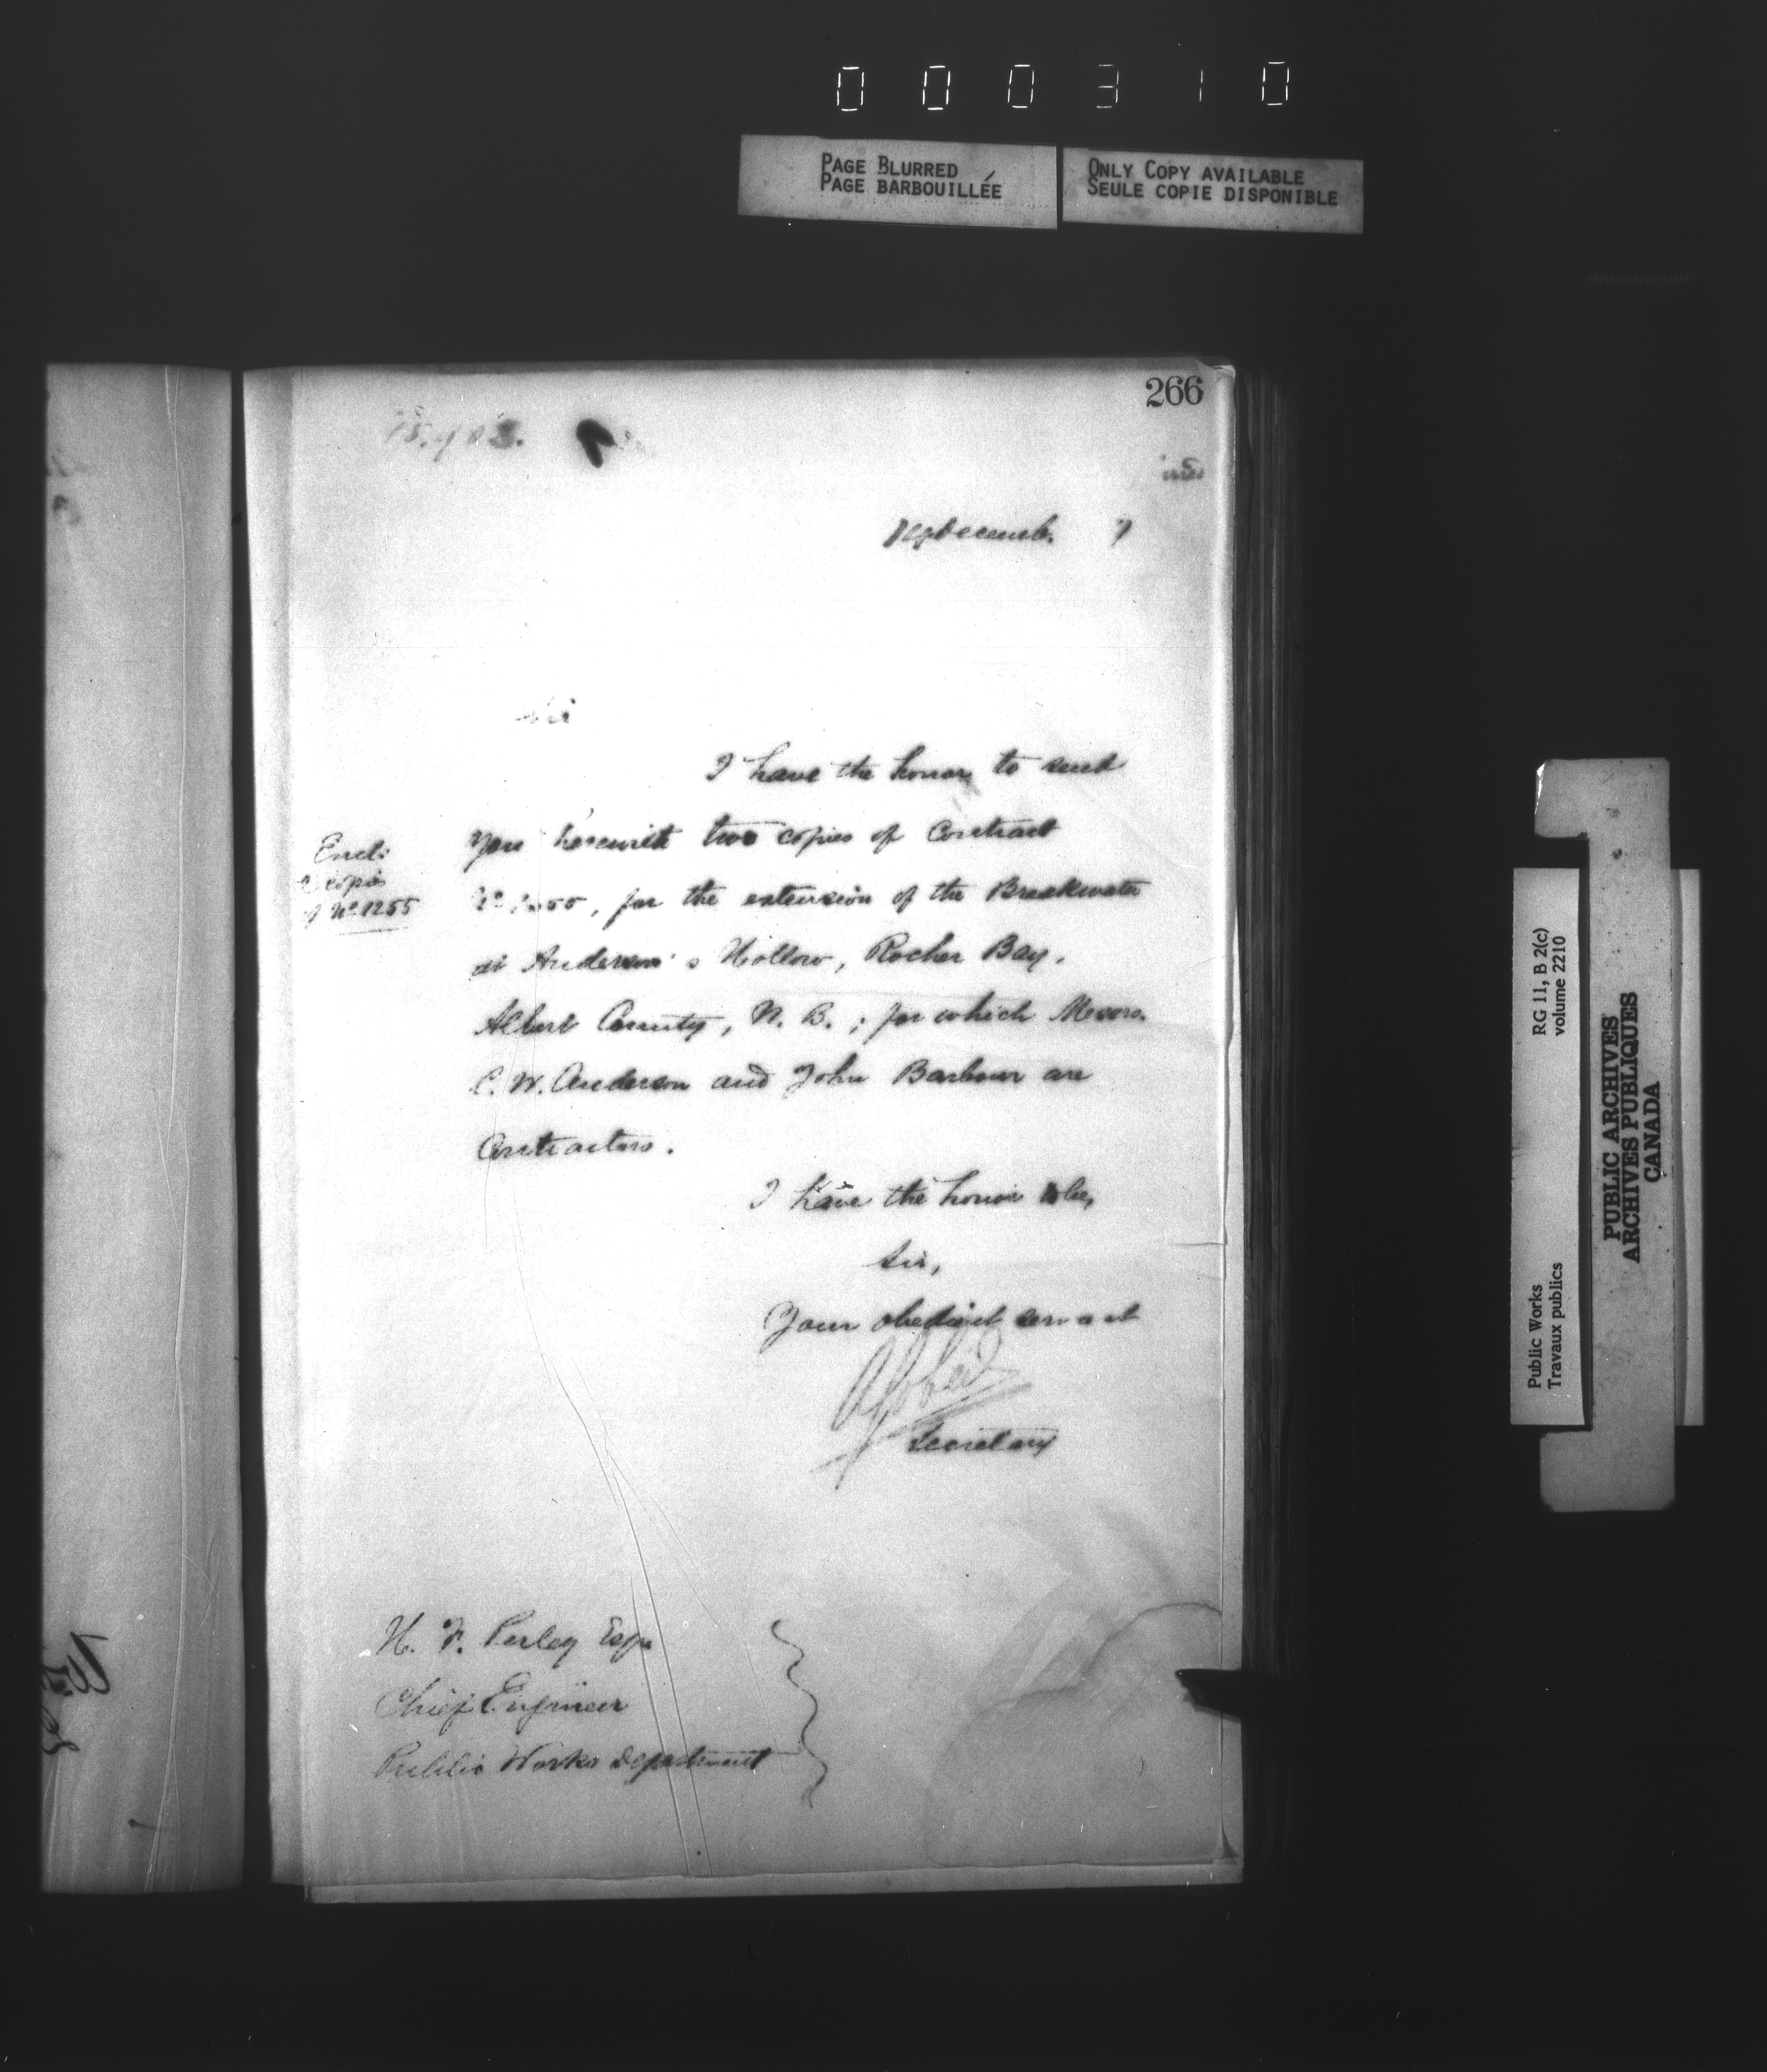 000310
PAGE BLURRED
PAGE BARBOUILLÉE
ONLY COPY AVAILABLE
SEULE COPIE DISPONIBLE
266
Decemb. 7
Sir
I have the honor to send
you herewith two copies of Contract
Encl:
2 copies
of No 1255
No 1255, for the extension of the Breakwater
at Anderson's Hollow, Rocher Bay,
Albert County, N. B.; for which Messrs.
C. W. Anderson and John Barbour are
Contractors.
I have the honor to be,
Sir,
Your obedient servant
Secretary
H. F. Perley Esqre
Chief Engineer
Public Works Department
RG 11, B 2(c)
volume 2210
Public Works
Travaux publics
PUBLIC ARCHIVES
ARCHIVES PUBLIQUES
CANADA